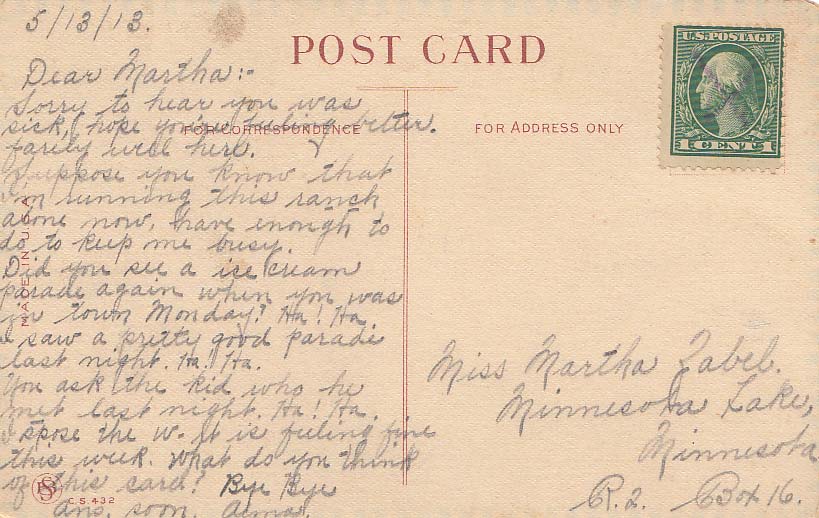 5/13/13.
POST CARD
U.S. POSTAGE
1 CENT 1
Dear Martha:-
Sorry to hear you was
sick, hope you're feeling better.
FOR CORRESPONDENCE
FOR ADDRESS ONLY
farely well here.
Suppose you know that
I'm running this ranch
alone now, have enough to
do to keep me busy.
Did you see a ice cream
parade again when you was
in town Monday? Ha! Ha.
I saw a pretty good parade
last night. Ha! Ha.
You ask the kid who he
met last night. Ha! Ha.
I spose the W. it is feeling fine
this week. What do you think
of this card? Bye Bye
Ans. soon. Alma.
MADE IN U.S.A.
C.S. 432
Miss Martha Zabel.
Minnesota Lake,
Minnesota
R. 2. Box 16.